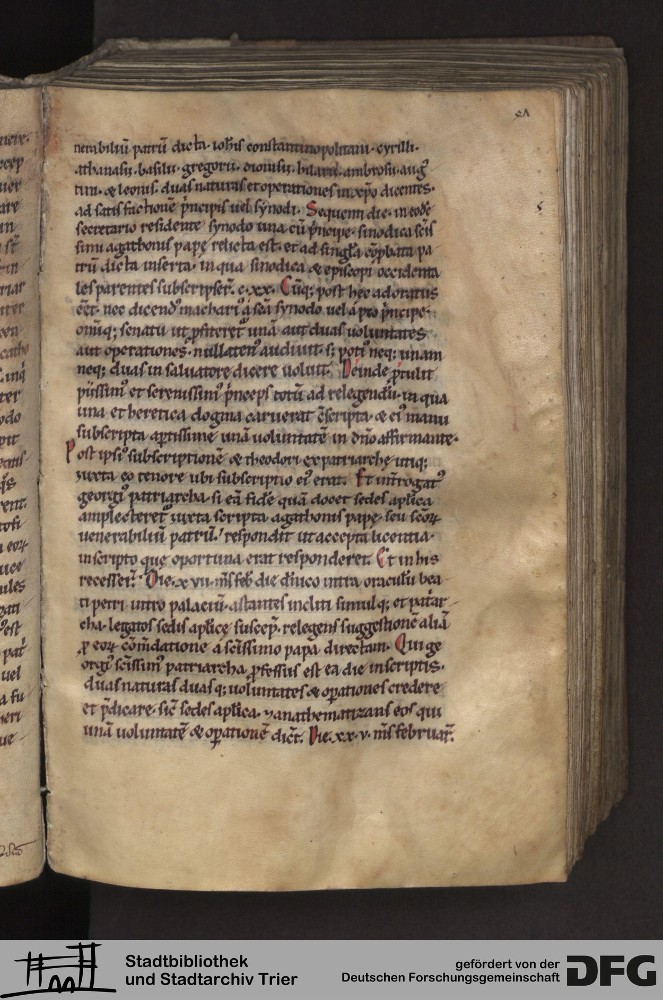 nerabiliū patrū dicta. ioħis constantinopolitani. cyrilli.
athanasii. basilii. gregorii. dionisii. hilarii. ambrosii. aug᷒
tini. & leonis. duas naturas et operationes in xp̄o dicentes.
ad satisfactionē p̄ncipis uel synodi. Sequenti die. in eodē
secretario residente synodo una cū p̄ncipe. sinodica scīs
simi agathonis papę relicta est. et ad singl̄a cōpbata pa
trū dicta inserta. in qua sinodica & episcopi occidenta
les parentes subscripser̄. c.xx. Cūq; post hęc adoratus
eēt. nec dicendo macharı᷒ a sēā synodo uel a pio p̄ncipe.
omniq; senatu ut ꝓfiteret᷒ unā aut duas uoluntates
aut operationes. nullaten᷒ audiuit. s; poti᷒ neq; unam
neq; duas in saluatore dicere uoluit. Deinde p̄tulit
piissim᷒ et serenissim᷒ p̄nceps totū ad relegendū. in qua
una et heretica dogma caruerat cscripta. & ei᷒ manu
subscripta aptissime unā uoluntatē in dn̄o affirmante.
Post ipsi᷒ subscriptionē & theodori expatriarche utiq;
iuxta eo tenore ubi subscriptio ei᷒ erat. Et int̄rogat᷒
georgi᷒ patriarcha si eā fidē quā docet sedes aplīca
amplecteret᷒ iuxta scripta agathonis papę. seu scōꝝ
venerabiliū patrū. respondit ut accepta licentia.
in scripto que oportuna erat responderet. Et in his
recesser̄. Die. xvii. m̄s feb̄ die dn̄ico intra oraculū bea
ti petri intro palaciū. astantes incliti simulq; et pat̄ar
cha. legatos sedis aplicę suscep̄. relegens suggestionē aliā
ꝓ eoꝝ cōm̄datione a scīssimo papa directam. Qui ge
orgi᷒ scīssim᷒ patriarcha ꝓfessus est ea die in scriptis.
duas naturas duasq; uoluntates & opationes credere
et p̄dicare. sic̄ sedes aplīca. ⁊ anathematizans eos qui
unā uoluntatē & opationē dict̄. Die. xx.v. m̄s februar̄.
Stadtbibliothek
und Stadtarchiv Trier
gefördert von der
Deutschen Forschungsgemeinschaft
DFG